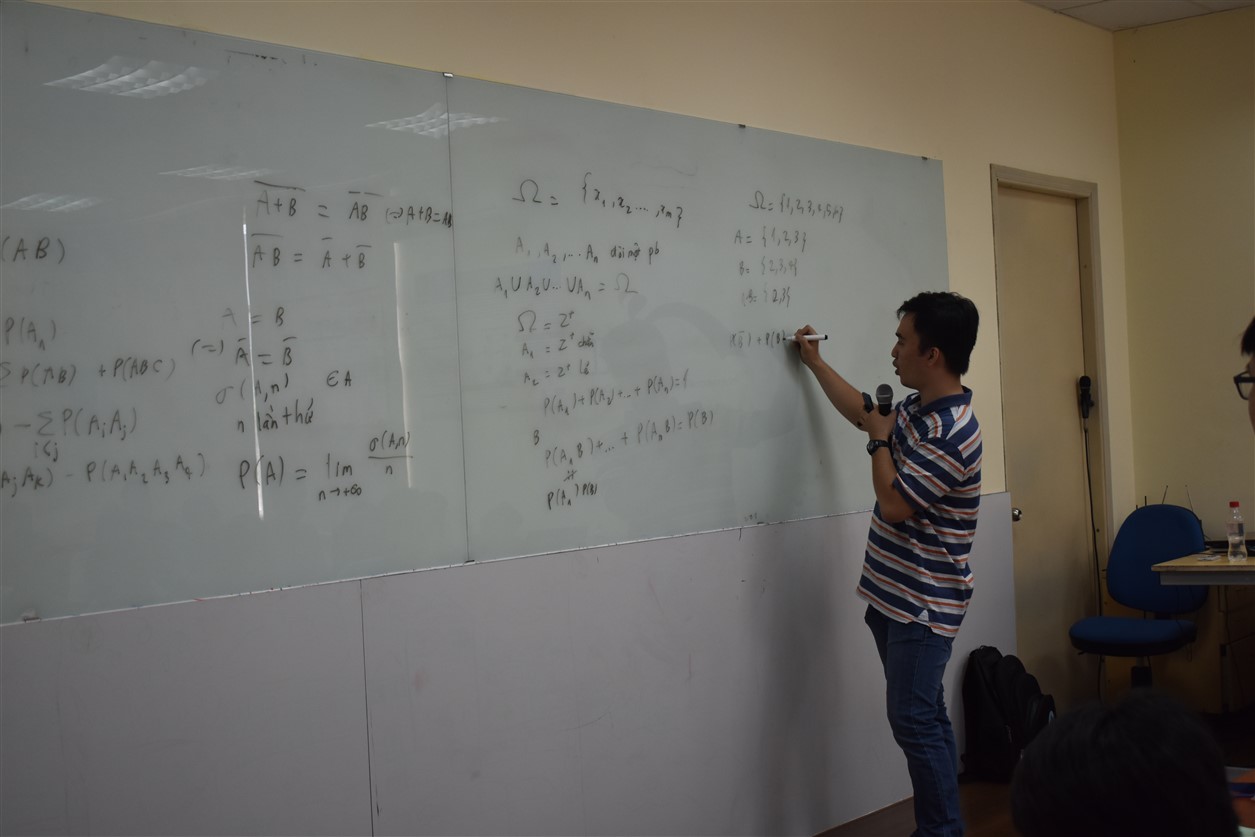 (AB)
P(Aₙ)
P(AB) + P(ABC)
- ∑ P(AᵢAⱼ)
i<j
AⱼAₖ) - P(A₁A₂A₃A₄)
\overline{A+B} = \overline{A}\,\overline{B} (=> A+B =
\overline{AB} = \overline{A} + \overline{B}
A = B
(=) \overline{A} = \overline{B}
σ(A,n) ∈A
n lần thứ
P(A) = lim σ(A,n)/n
n→+∞
Ω = {x₁, x₂ ..., xₘ}
A₁, A₂, ... Aₙ đôi một
A₁ ∪ A₂ ∪ ... ∪ Aₙ = Ω
Ω = Z⁺
A₁ = Z⁺ chẵn
A₂ = Z⁺ lẻ
P(A₁) + P(A₂) + ... + P(Aₙ) = 1
B
P(A₁B) + ... + P(AₙB) = P(B)
P(A₁) P(B)
Ω = {1, 2, 3, 4, 5, 6}
A = {1, 2, 3}
B = {2, 3, 4}
{2, 3}
) + P(B)